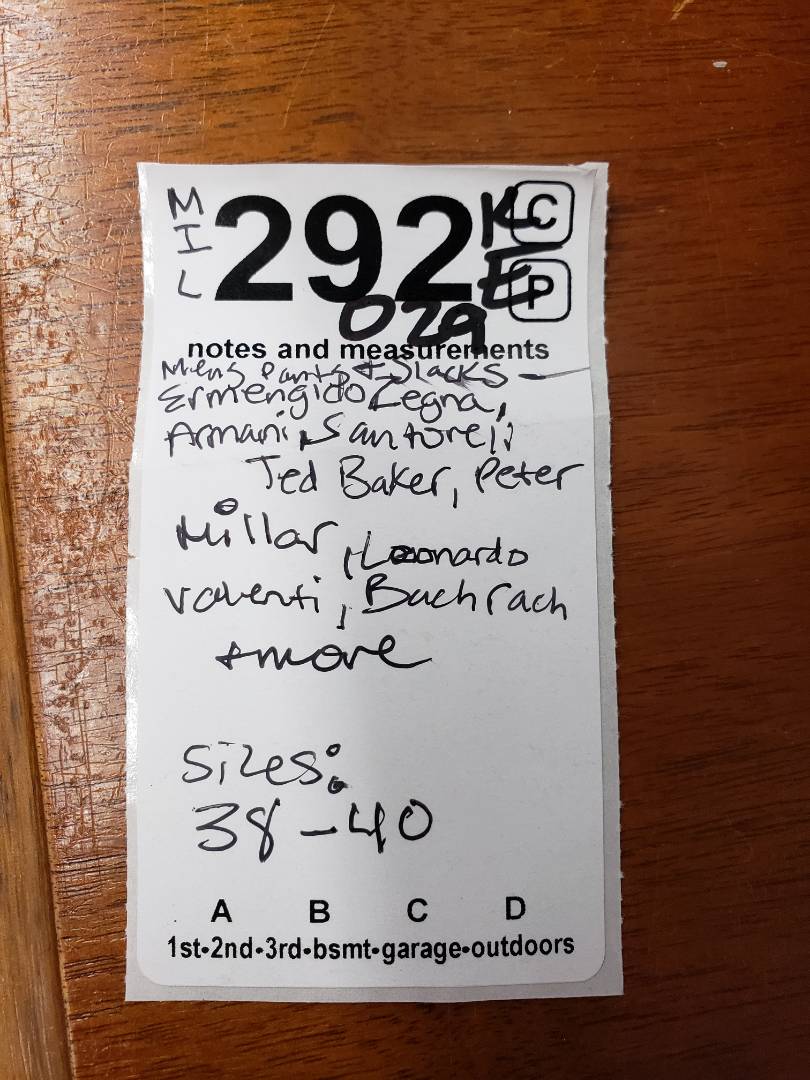 MIL 292 KE C P
029
notes and measurements
Mens Pants + Slacks —
Ermengido Zegna,
Armani, Santorelli
Ted Baker, Peter
Millar, Leonardo
Valenti, Bachrach
+more
Sizes:
38-40
A B C D
1st•2nd•3rd•bsmt•garage•outdoors